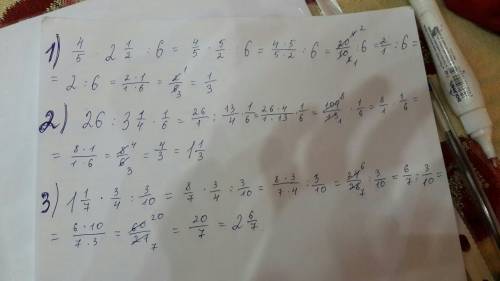 1) 4/5 · 2 1/2 : 6 = 4/5 · 5/2 · 6 = (4·5)/(5·2) : 6 = 20/10 : 6 = 2/1 : 6 =
= 2 : 6 = (2·1)/(1·6) = 2/6 = 1/3
2) 26 : 3 1/4 · 1/6 = 26/1 : 13/4 · 1/6 = (26·4)/(1·13) · 1/6 = 104/13 · 1/6 = 8/1 · 1/6 =
= (8·1)/(1·6) = 8/6 = 4/3 = 1 1/3
3) 1 1/7 · 3/4 : 3/10 = 8/7 · 3/4 : 3/10 = (8·3)/(7·4) : 3/10 = 24/28 : 3/10 = 6/7 : 3/10 =
= (6·10)/(7·3) = 60/21 = 20/7 = 2 6/7